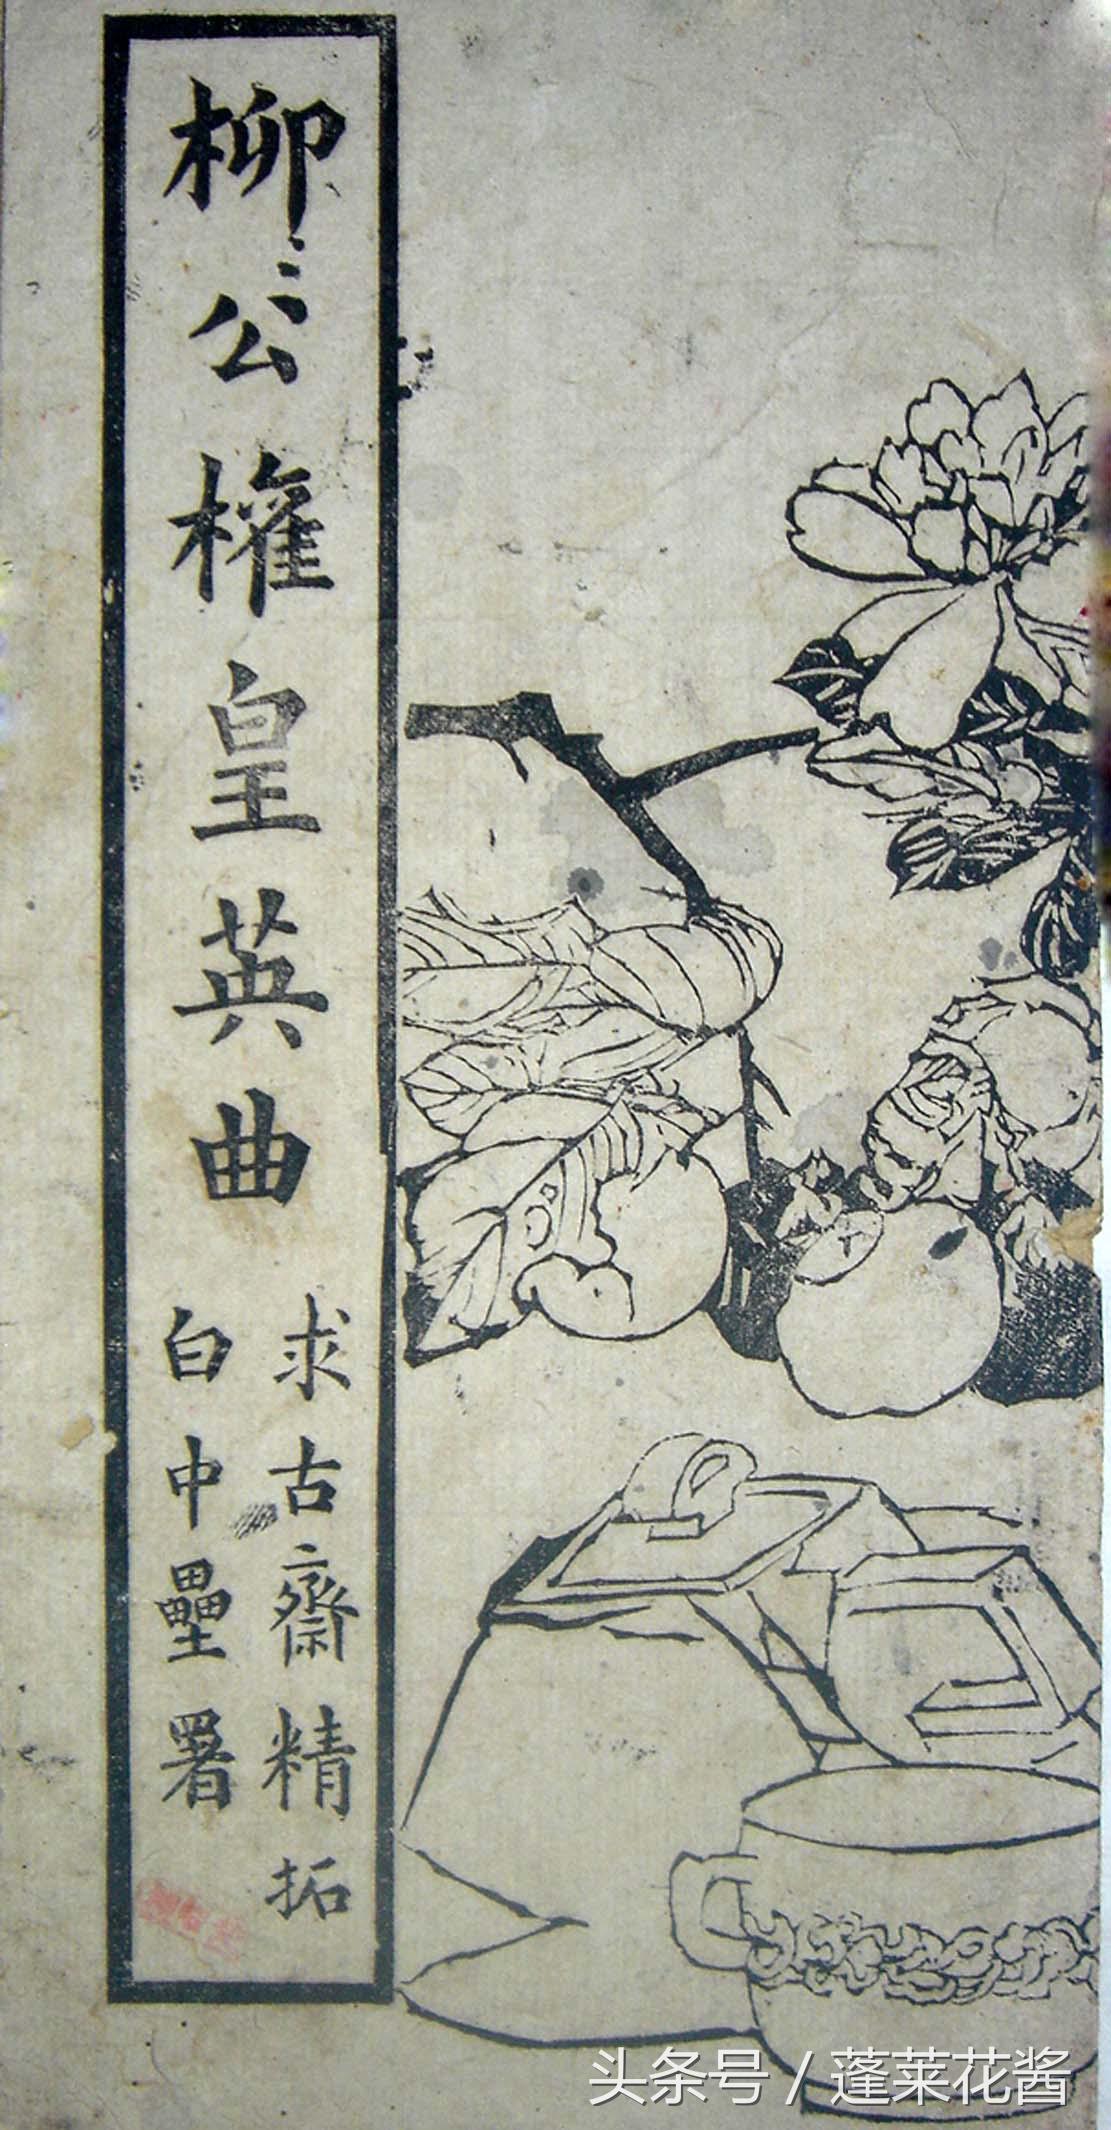 柳公權皇英曲
求古齋精拓
白中壘署
头条号 / 蓬莱花酱